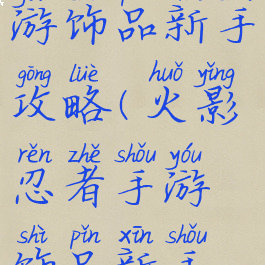 游饰品新手
gōng lüè huǒ yǐng
攻略(火影
rěn zhě shǒu yóu
忍者手游
shì pǐn xīn shǒu
饰品新手